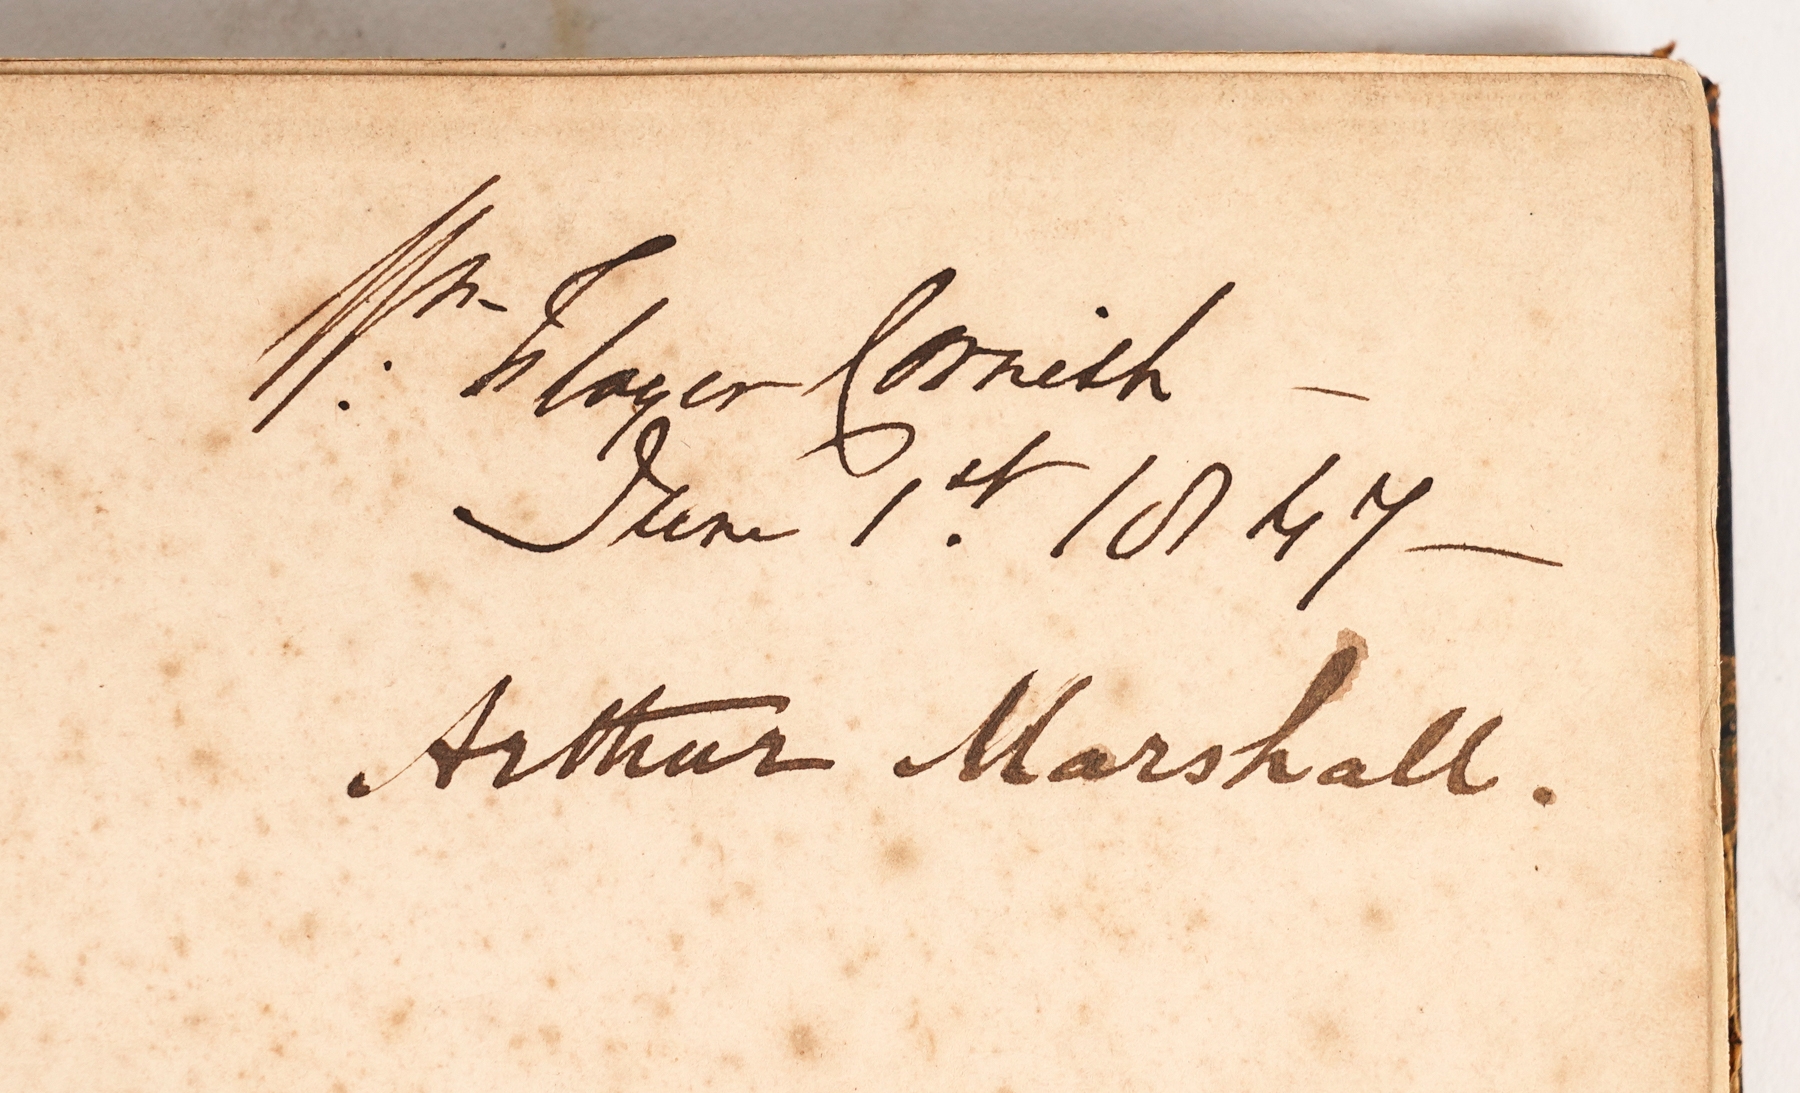 Wm. Floyer Cornish —
June 1st. 1847 —
Arthur Marshall.